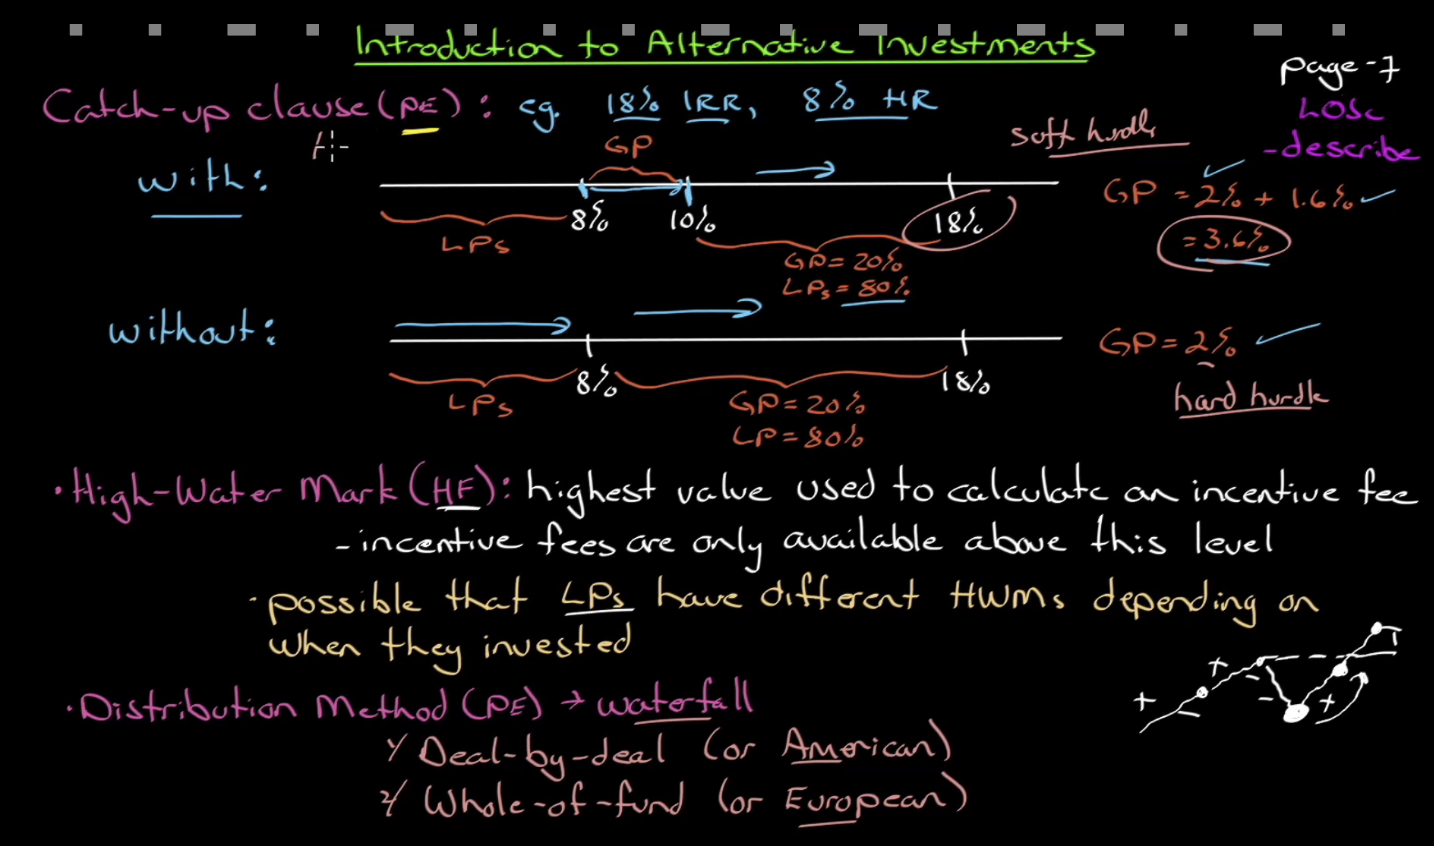 Introduction to Alternative Investments
page-7
LOSc
-describe
Catch-up clause (PE): eg. 18% IRR, 8% HR
soft hurdle
GP
with:
8% 10% 18%
LPs
GP = 20%
LPs = 80%
GP = 2% + 1.6%
= 3.6%
without:
8% 18%
LPs
GP = 20%
LP = 80%
GP = 2%
hard hurdle
·High-Water Mark (HF): highest value used to calculate an incentive fee
-incentive fees are only available above this level
·possible that LPs have different HWMs depending on
when they invested
+ - + - - +
·Distribution Method (PE) → waterfall
1/ Deal-by-deal (or American)
2/ Whole-of-fund (or European)